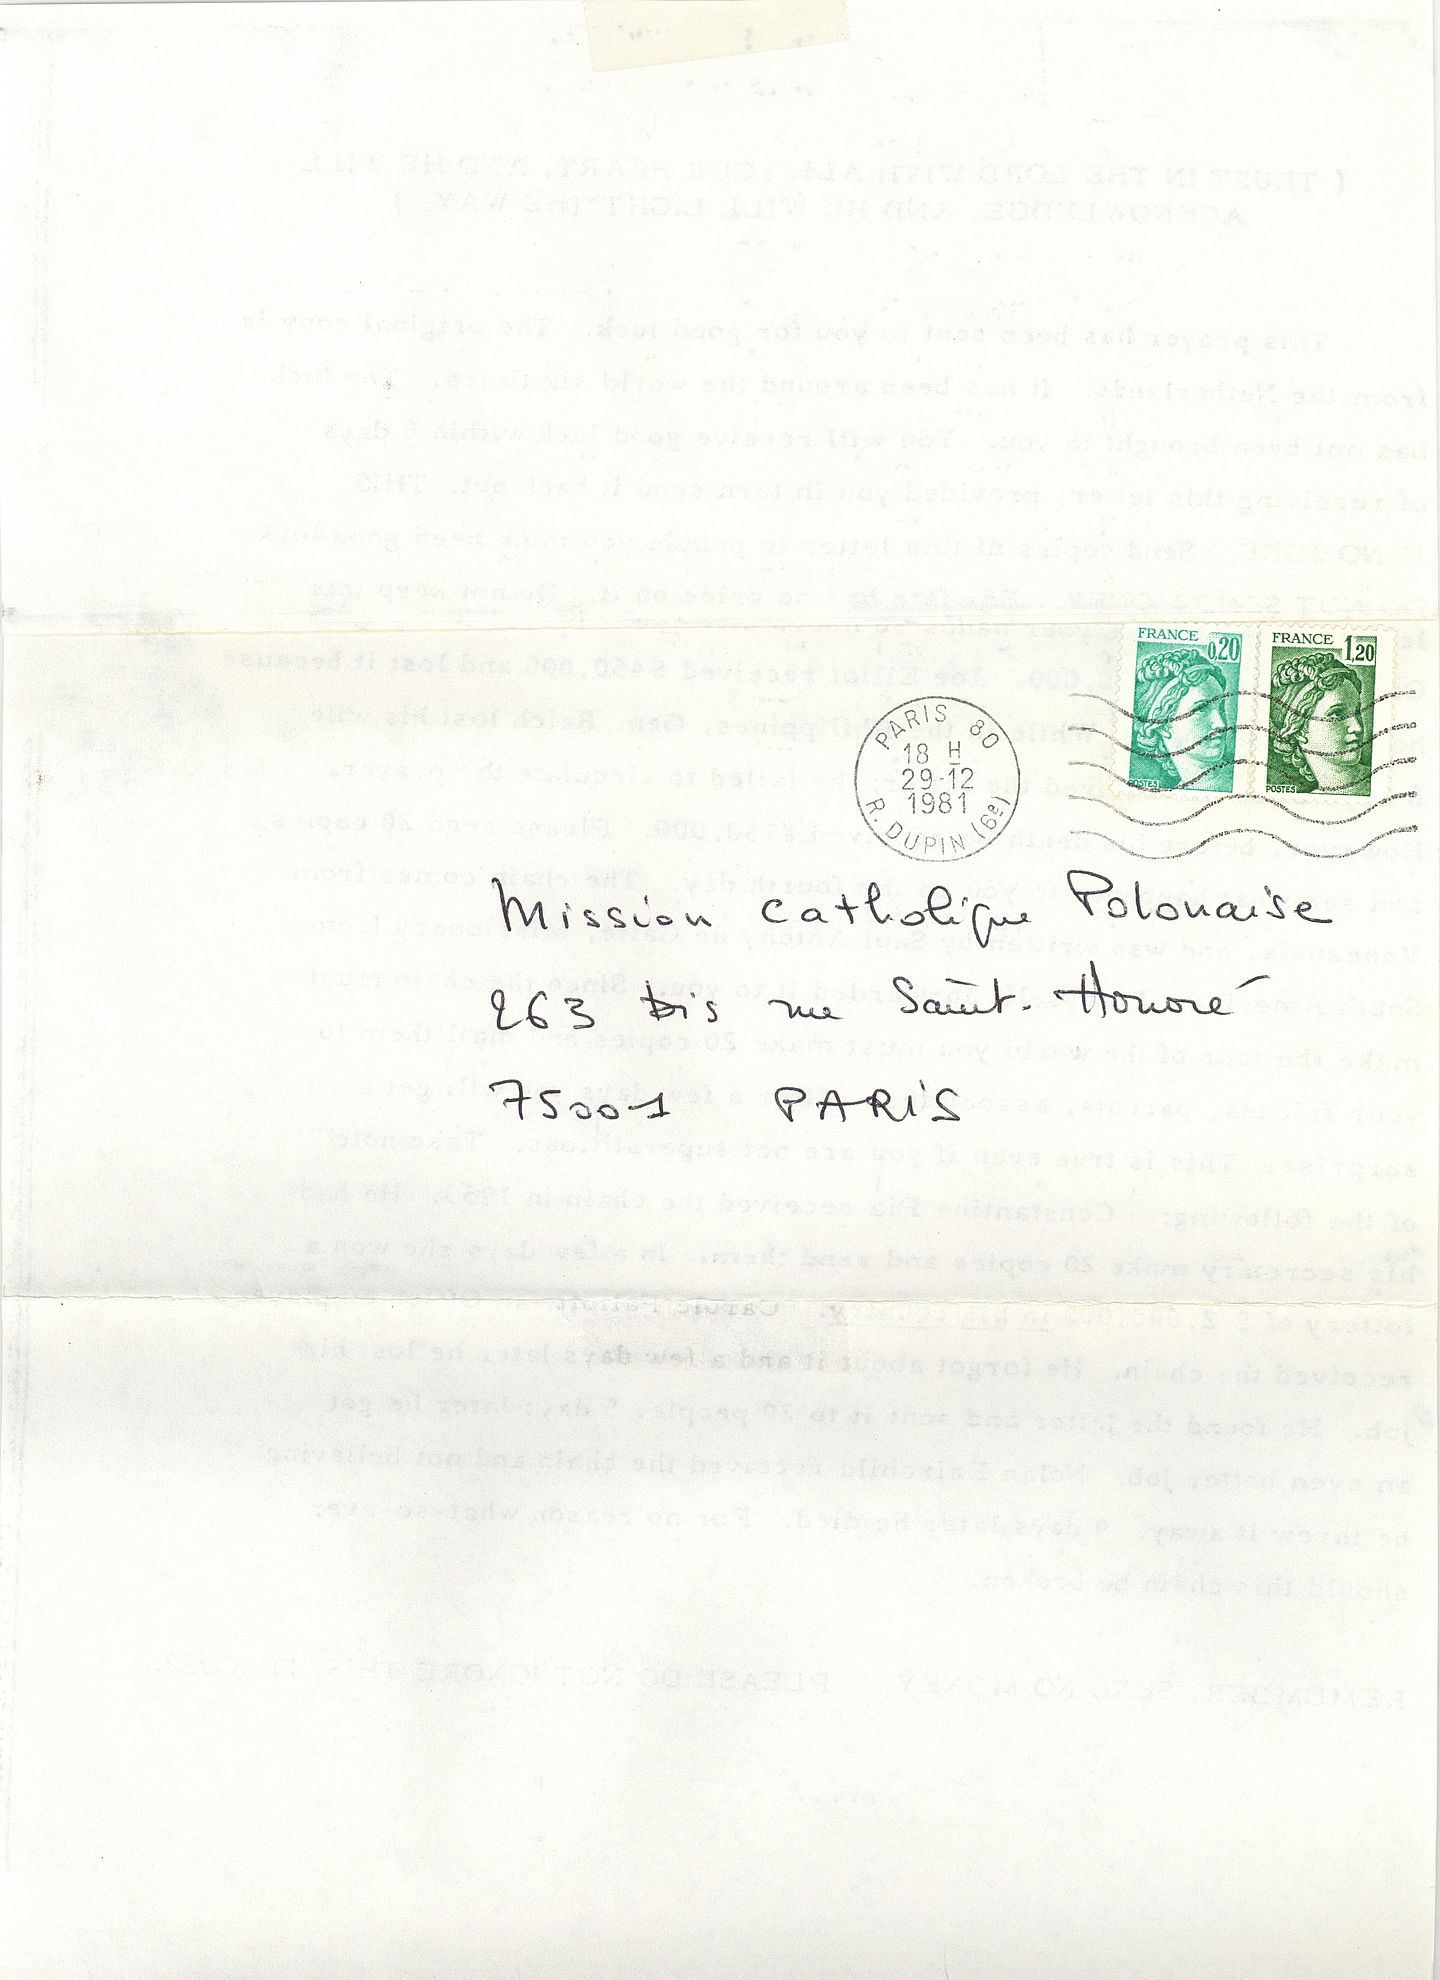 FRANCE 0,20
POSTES
FRANCE 1,20
POSTES
PARIS 80
18 H
29-12
1981
R. DUPIN (6e)
Mission Catholique Polonaise
263 bis rue Saint-Honoré
75001 PARIS
( TRUST IN THE LORD WITH ALL YOUR HEART, AND HE WILL
ACKNOWLEDGE, AND HE WILL LIGHT THE WAY. )
This prayer has been sent to you for good luck. The original copy is
from the Netherlands. It has been around the world six times. The luck
has not been brought to you. You will receive good luck within 6 days
of receiving this letter, provided you in turn send it back out. THIS
IS NO JOKE. Send copies of this letter to people you think need good luck
DO NOT SEND MONEY. For fate has no price on it. Do not keep this
your hands
000. Joe Elliot received $450,000 and lost it because
While the Philippines Gen. Raich lost his wife
failed to circulate the prayer.
However, before death received $750,000. Please send 20 copies
and to you the fourth day. The chain comes from
Venezuela and was written by Saul Antony
South forwarded it to you. Since the chain must
make the tour of the world you must make 20 copies and mail them to
your parents, a few days get a
surprise. This is true even if you are not superstitious. Take note
of the following: Constantine received the chain in 1953. He had
his secretary make 20 copies and send them. In a few days she won a
lottery of $ 2,000,000 in his country. Carole
received the chain. He forgot about it and a few days later he lost his
job. He found the letter and sent it to 20 people. days later he got
an even better job. Nolan Fairchild received the chain and not believing
he threw it away. 9 days later he died. For no reason what-so-ever
should this chain be broken.
REMEMBER, SEND NO MONEY. PLEASE DO NOT IGNORE THIS. IT WORKS